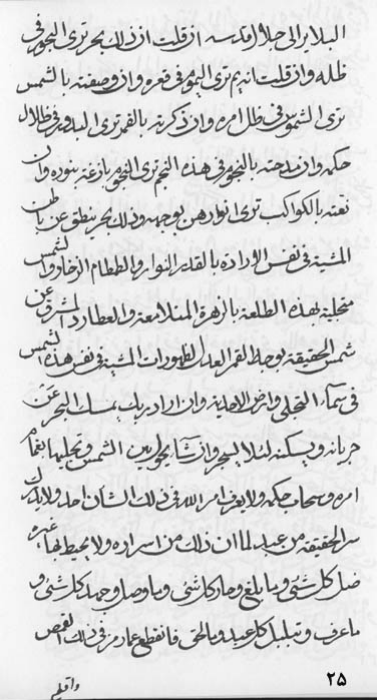 البلايا الى جلال قدسه ان قلت ان ذلك بحر ترى البحور فى
ظله وان قلت انه يم ترى اليموم فى قعره وان وصفته بالشمس
ترى الشموس فى ظل امره وان ذكرته بالقمر ترى البدور فى ظلال
حكمه وان مدحته بالنجوم فى هذه النجم ترى النجوم بازغة بنوره وان
نعته بالكواكب ترى انوارهن بوجهه وذلك بحر ينطق عن باطن
المشية فى نفس الارادة بالقدر النوار والطمطام الزخار والشمس
متجلية بهذه الطلعة بالزهرة المتلامعة والعطارد المشرق عن
شمس الحقيقة بوجه القمر العدل لظهورات المشية فى نفس هذه الشمس
فى سماء التجلى وارض الاحدية وان اراد ربك يمسك البحر عن
جريانه ويسكنه لئلا يسجر وان شاء يحول بين الشمس وتجليها بغمام
امره وسحاب حكمه ولا يعرف امر الله فى ذلك الشأن احد ولا يدرك
سر الحقيقة من عبد لما ان ذلك من اسراره ولا يحيط بها غيره
ضل كل شئ وما بلغ وحار كل شئ وما وصل وجهد كل شئ و
ما عرف وتبلبل كل عبد وما لحق فانقطع عما رمز فى ذلك القمص
واقبل
۲۵